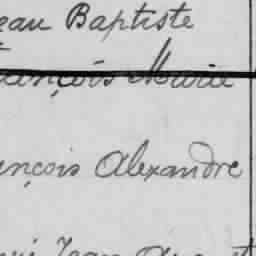 ean Baptiste
ançois Marie
ançois Alexandre
Jean